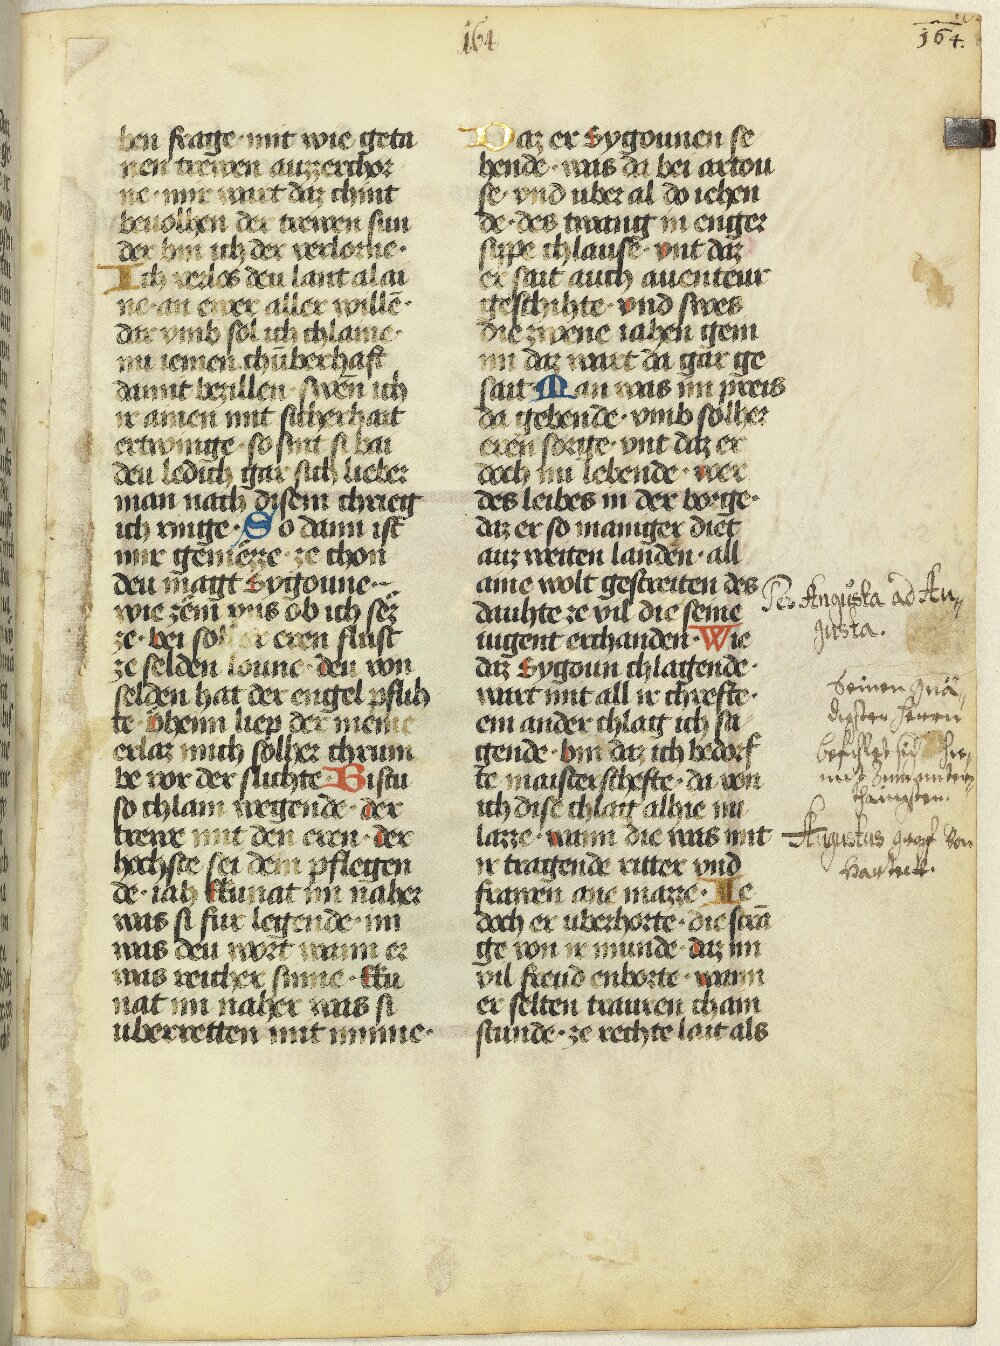 164
164.
ben frage · mit wie geta
nen trewen auzzerchor
ne · mir wart daz chint
beuolhen der trewen sun
der bin ich der verlorne ·
Ich verlos deu lant alai
ne · an ewer aller willē ·
dar vmb sol ich chlaine ·
nu iemen chūberhaft
damit bezillen · swen ich
ir ainen mit sicherhait
ertwinge · so sint si bai
deu ledich gar sich lieber
man nach disem chrieg
ich ringe · So dann ist
mir gemezze ze chon
deu magt Sygoune ·
wie zem vns ob ich sez
ze · bei solher eren flust
ze selden loune · den von
selden hat der engel pflih
te · Oheim liep der meine
erlaz mich solher chrum
be vor der slichte · Bistu
so chlain wegende · der
trewe mit den eren · der
hochste sei dem pflegen
de · iah Kunat im naher
was si fur legende · im
was deu wort wann er
was reicher sinne · Ku
nat im naher was si
uberretten mit minne ·
Daz er Sygounen se
hende · was da bei artou
se · vnd uber al do iehen
de · des twang in enger
sippe chlause · vnt daz
er sait auch auenteur
geschihte · vnd swes
die zwene iahen gein
im daz wart da gar ge
sait Man was im preis
da gebende · vmb solher
eren sorge · vnt daz er
doch nu lebende · wer
des leibes in der borge ·
daz er so maniger diet
auz weiten landen · all
aine wolt gestreiten des
dauhte ze vil die seine
iugent erchanden · Wie
daz Sygoun chlagende ·
wart mit all ir chrefte ·
ein ander chlag ich sa
gende · bin daz ich bedorf
te maisterschefte · da von
ich dise chlag alhie nu
lazze · wann die was mit
ir tragende ritter vnd
frawen ane mazze · Ie
doch er uberhorte · die stra
ge von ir munde · daz im
vil freud enborte · wann
er selten trauren cham
stunde · ze rechte lait als
Per Angusta ad Au-
gusta.
Seinen Gnä
digsten Herrn
befihlet sich hie-
mit Zum unter-
thänigsten.
Augustus graf von
Hardeck.